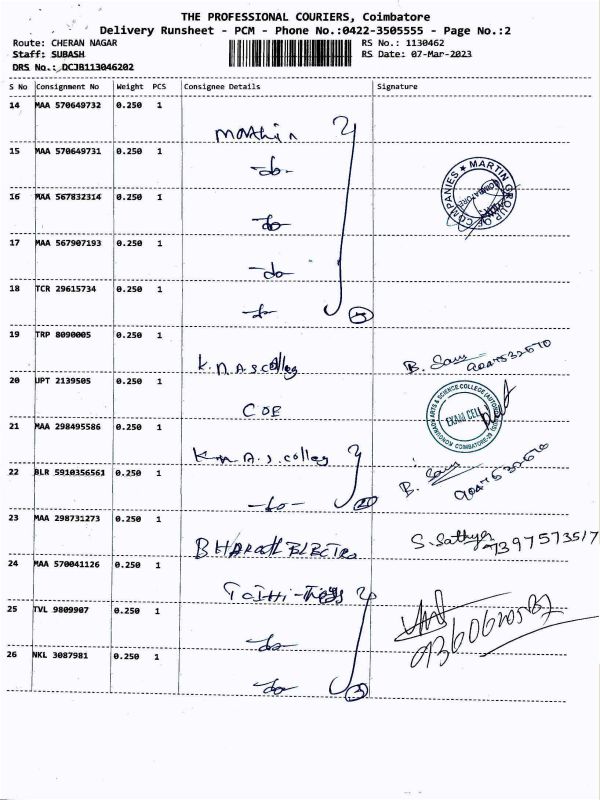 THE PROFESSIONAL COURIERS, Coimbatore
Delivery Runsheet - PCM - Phone No.:0422-3505555 - Page No.:2
Route: CHERAN NAGAR
RS No.: 1130462
Staff: SUBASH
RS Date: 07-Mar-2023
DRS No.: DCJB113046202
S No Consignment No Weight PCS Consignee Details Signature
14 MAA 570649732 0.250 1
Marthin
15 MAA 570649731 0.250 1
-do-
MARTIN GROUP OF COMPANIES
COIMBATORE
16 MAA 567832314 0.250 1
-do-
17 MAA 567907193 0.250 1
-do-
18 TCR 29615734 0.250 1
-do-
5
19 TRP 8090005 0.250 1
K.N.A.S.colleg
B. Sam
20 UPT 2139505 0.250 1
COE
ARTS & SCIENCE COLLEGE
EXAM CELL
COIMBATORE
21 MAA 298495586 0.250 1
K.N.A.S.colleg
B. Sam
22 BLR 5910356561 0.250 1
-do-
2
23 MAA 298731273 0.250 1
BHARATH ELECTRO
S. Sathya
7397573517
24 MAA 570041126 0.250 1
25 TVL 9809907 0.250 1
-do-
26 NKL 3087981 0.250 1
-do-
3